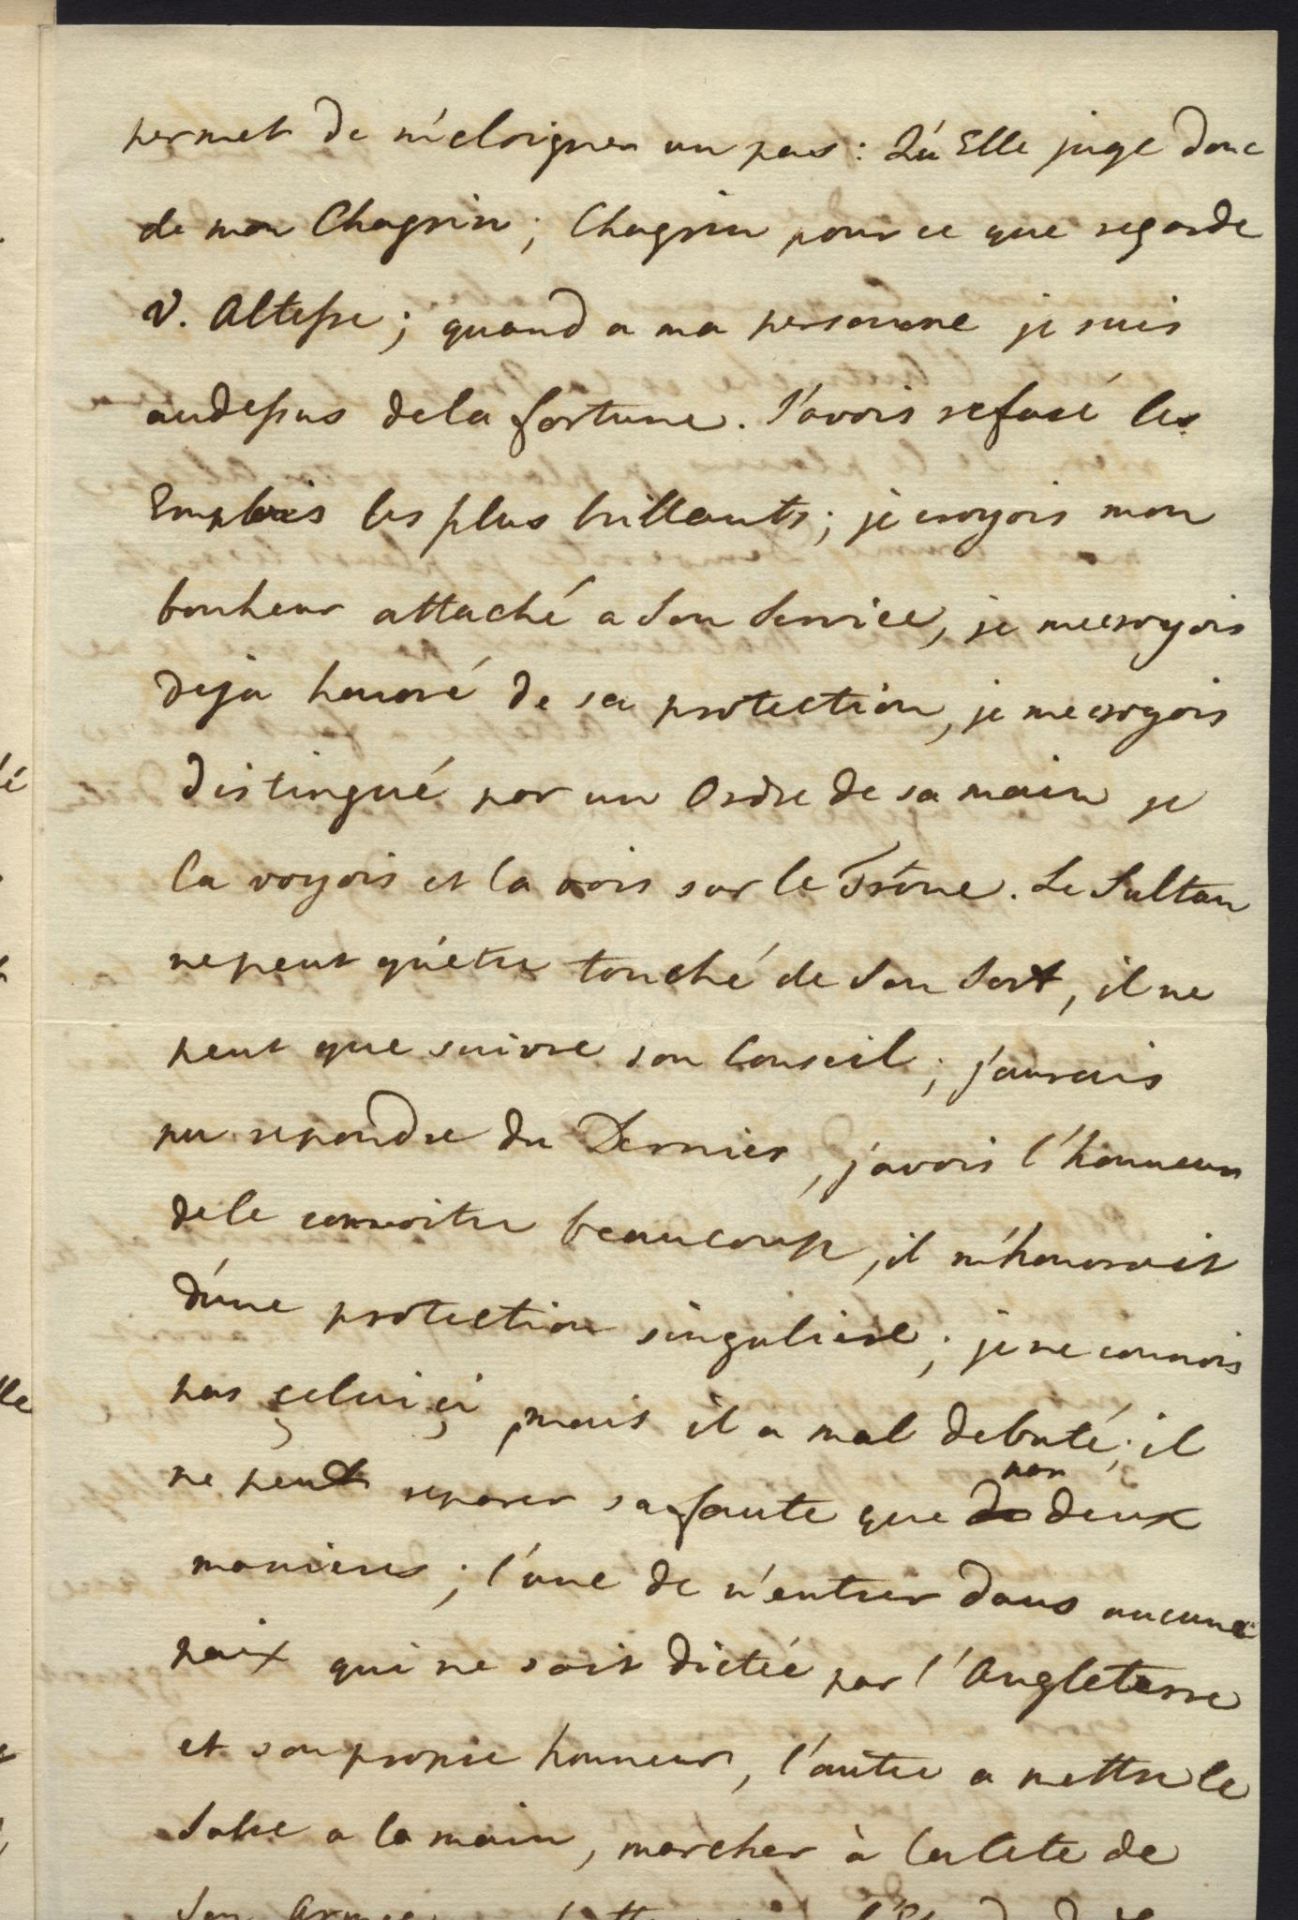 permet de m'eloigner un pas: Qu'Elle juge donc
de mon Chagrin; Chagrin pour ce que regarde
V. Altesse; quand a ma personne je suis
audessus dela fortune. J'avois refusé les
Emplois les plus brillants; je croyois mon
bonheur attaché a Son Service, je me croyois
deja honoré de sa protection, je me croyois
distingué par un Ordre de sa main je
la voyois et la vois sur le Trône. Le Sultan
ne peut qu'etre touché de Son Sort, il ne
peut que suivre son Conseil; j'aurais
pu repondre du Dernier, j'avois l'honneur
dele connoitre beaucoup, il m'honoroit
d'une protection singuliere; je ne connois
pas celui çi, mais il a mal debuté; il
ne peut reparer sa faute que par deux
manieres; l'une de n'entrer dans aucune
paix qui ne soit dictée par l'Angleterre
et son propre honneur, l'autre a mettre le
Sabre a la main, marcher à la tete de
Son Armée